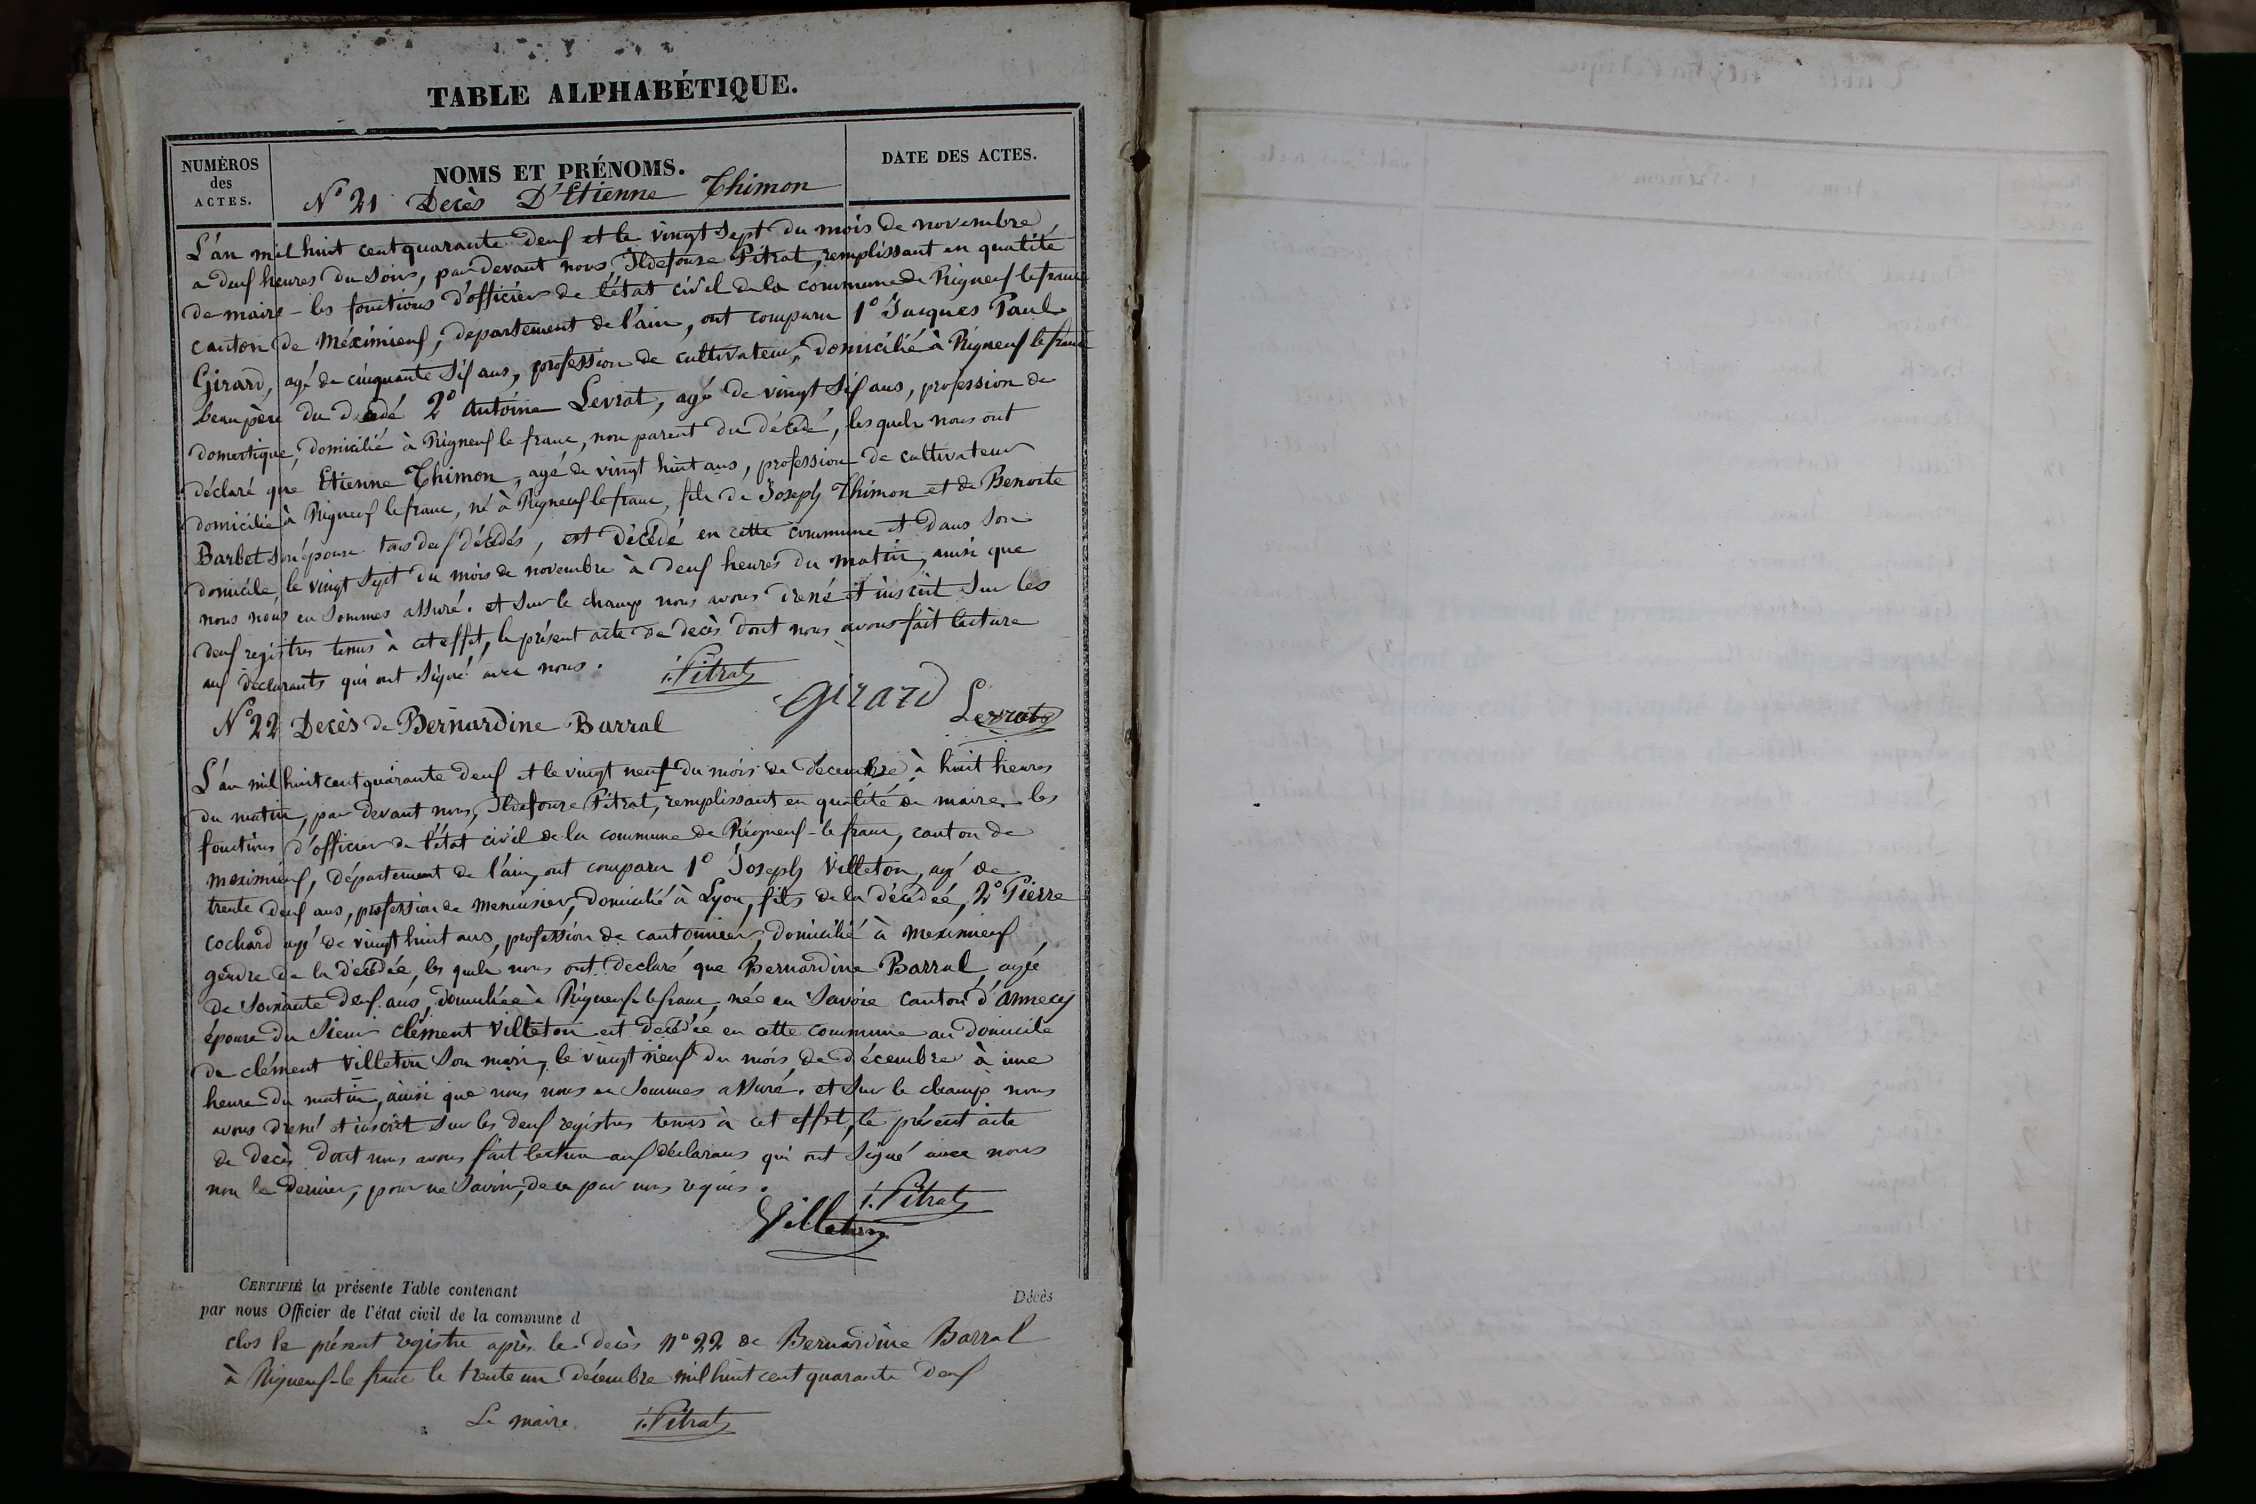 TABLE ALPHABÉTIQUE.
NUMÉROS
des
ACTES.
NOMS ET PRÉNOMS.
DATE DES ACTES.
N° 21 Decès D'Etienne Thimon
L'an mil huit cent quarante deux et le vingt sept du mois de novembre
a deux heures du soir, par devant nous Ildefonse Pitrat, remplissant en qualité
de maire les fonctions d'officier de l'état civil de la commune de Rigneux le franc
canton de Méximieux, departement de l'ain, ont comparu 1° Jacques Paul
Girard, agé de cinquante six ans, profession de cultivateur, domicilié à Rigneux le franc
beaupère du décédé 2° Antoine Levrat, agé de vingt six ans, profession de
domestique, domicilié à Rigneux le franc, non parent du décédé, lesquels nous ont
déclaré que Etienne Thimon, agé de vingt huit ans, profession de cultivateur
domicilié à Rigneux le franc, né à Rigneux le franc, fils de Joseph Thimon et de Benoite
Barbet son épouse tous deux décédés, est décédé en cette commune et dans son
domicile, le vingt sept du mois de novembre à deux heures du matin, ainsi que
nous nous en sommes assuré. et sur le champ nous avons dressé et inscrit sur les
deux registres tenus à cet effet, le présent acte de decès dont nous avons fait lecture
aux déclarants qui ont signé avec nous.
i. Pitrat
Girard
Levrat
N° 22 Decès de Bernardine Barral
L'an mil huit cent quarante deux et le vingt neuf du mois de décembre à huit heures
du matin, par devant nous, Ildefonse Pitrat, remplissant en qualité de maire les
fonctions d'officier de l'état civil de la commune de Rigneux-le franc, canton de
meximieux, département de l'ain, ont comparu 1° Joseph Villeton, agé de
trente deux ans, profession de menuisier, domicilié à Lyon, fils de la décédée, 2° Pierre
Cochard agé de vingt huit ans, profession de cantonnier, domicilié à Meximieux
gendre de la décédée, les quels nous ont declaré que Bernardine Barral, agée
de soixante deux ans, domiciliée à Rigneux-le franc, née en Savoie canton d'annecy
épouse du sieur clément Villeton est decédée en cette commune au domicile
de clément Villeton son mari, le vingt neuf du mois de décembre à une
heure du matin, ainsi que nous nous en sommes assuré. et sur le champ nous
avons dressé et inscrit sur les deux registres tenus à cet effet, le présent acte
de decès dont nous avons fait lecture aux déclarans qui ont signé avec nous
non le dernier, pour ne savoir, de ce par nous requis.
i. Pitrat
Villeton
CERTIFIÉ la présente Table contenant
Décès
par nous Officier de l'état civil de la commune d
clos le présent registre après le decès n° 22 de Bernardine Barral
à Rigneux-le franc le trente un décembre mil huit cent quarante deux
Le maire i. Pitrat